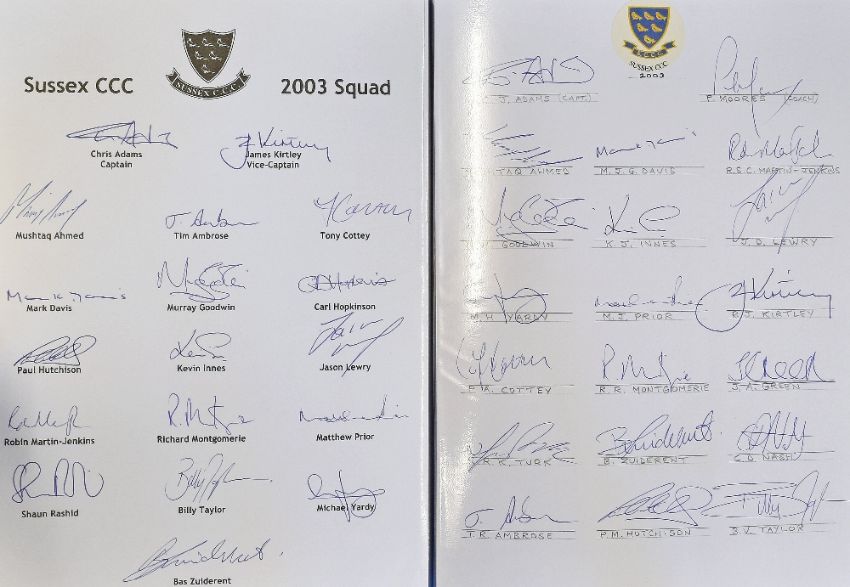 Sussex CCC
SUSSEX C.C.C.
2003 Squad
Chris Adams
Captain
James Kirtley
Vice-Captain
Mushtaq Ahmed
Tim Ambrose
Tony Cottey
Mark Davis
Murray Goodwin
Carl Hopkinson
Paul Hutchison
Kevin Innes
Jason Lewry
Robin Martin-Jenkins
Richard Montgomerie
Matthew Prior
Shaun Rashid
Billy Taylor
Michael Yardy
Bas Zuiderent
C.C.C.
SUSSEX CCC
2003
J. ADAMS (CAPT.)
P. MOORES (COACH)
TAQ AHMED
M.J.G. DAVIS
R.S.C. MARTIN-JENKINS
GOODWIN
K.J. INNES
J.D. LEWRY
M.H. YARDY
M.J. PRIOR
R.J. KIRTLEY
P.A. COTTEY
R.R. MONTGOMERIE
J.A. GREEN
R.K. TURK
B. ZUIDERENT
C.D. NASH
T.R. AMBROSE
P.M. HUTCHISON
B.V. TAYLOR